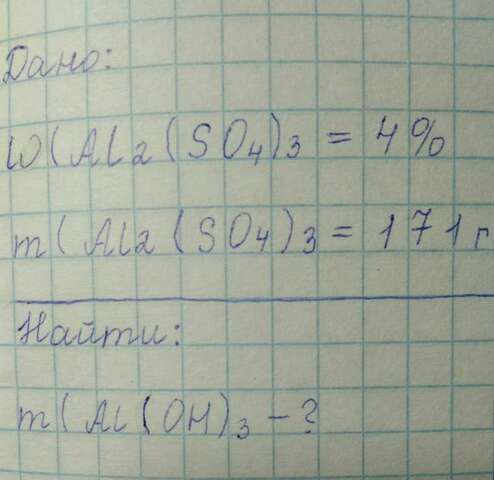 Дано:
W(Al2(SO4)3 = 4%
m(Al2(SO4)3 = 171г
Найти:
m(Al(OH)3 - ?